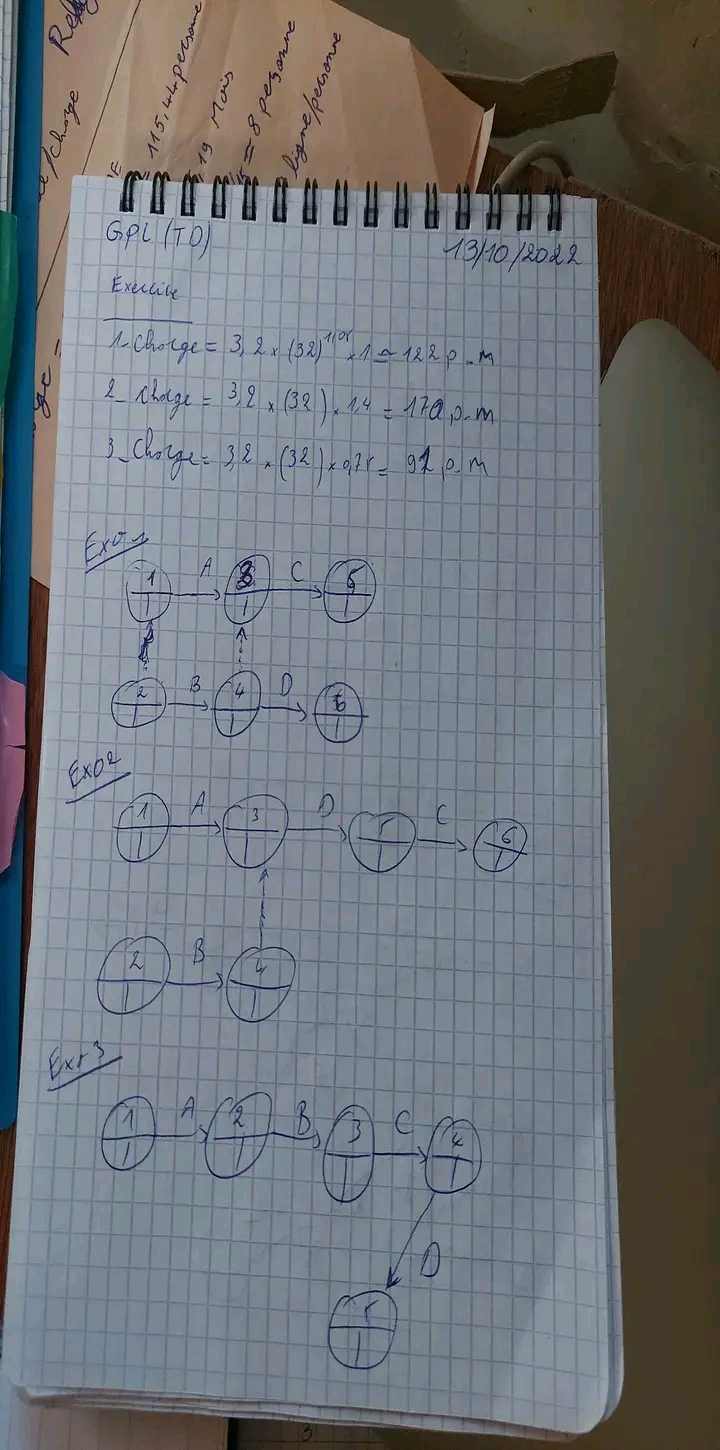 Rel
115,44 personne
19 Mois
= 8 personne
ligne/personne
/charge
GPL (TD)
13/10/2022
Exercice
1- Charge = 3,2 × (32)^1,05 × 1 ≃ 122 p-m
2- Charge = 3,2 × (32) × 1,4 = 170 p-m
3- Charge = 3,2 × (32) × 0,75 = 91 p-m
Exo 1
1 A 3 C 5
2 B 4 D 6
Exo 2
1 A 3 D 5 C 6
2 B 4
Exr 3
1 A 2 B 3 C 4
D
5
3